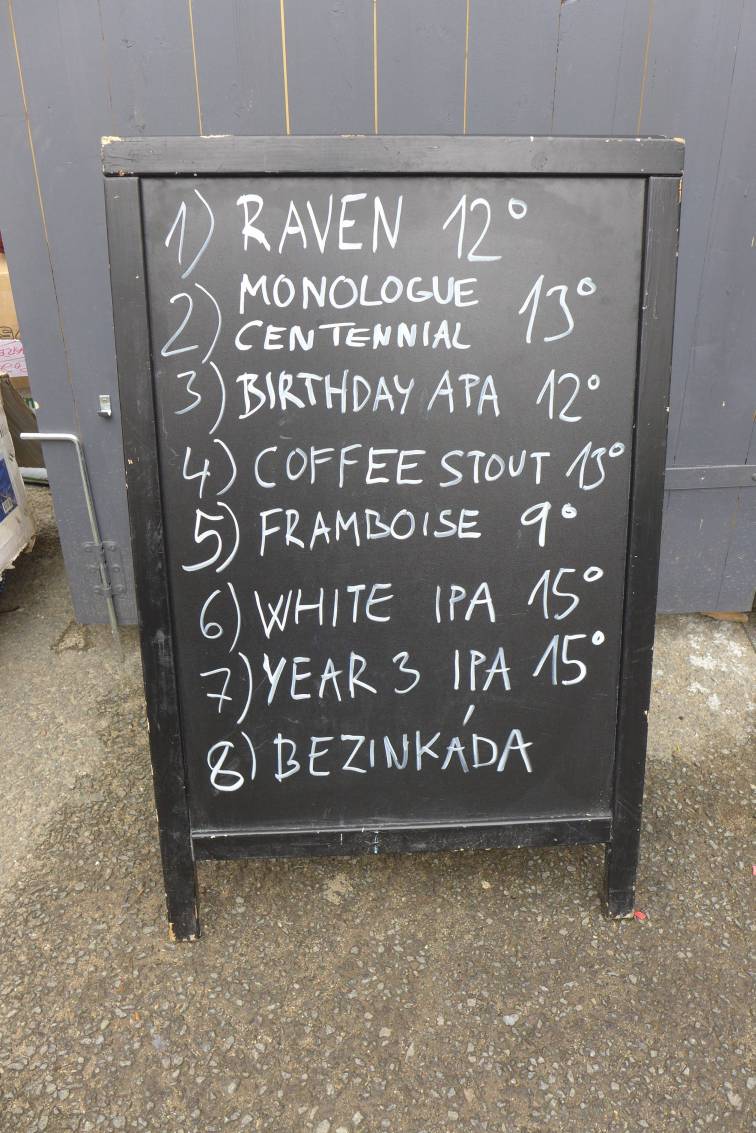 1) RAVEN 12°
2) MONOLOGUE
CENTENNIAL 13°
3) BIRTHDAY APA 12°
4) COFFEE STOUT 13°
5) FRAMBOISE 9°
6) WHITE IPA 15°
7) YEAR 3 IPA 15°
8) BEZINKÁDA